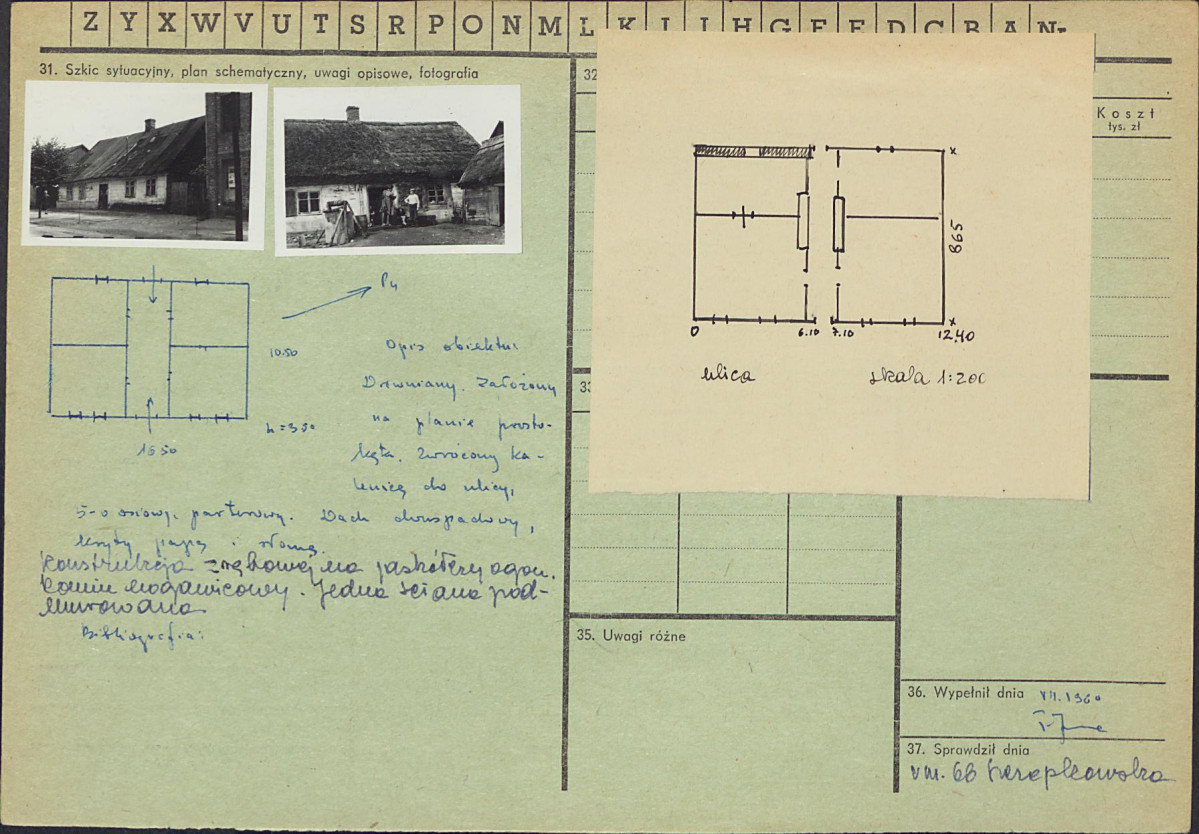 Z Y X W V U T S R P O N M L K J I H G F E D C B A Nr
31. Szkic sytuacyjny, plan schematyczny, uwagi opisowe, fotografia
32
Koszt
tys. zł
865
0 6.10 7.10 12.40
ulica skala 1:200
10.50
h = 3.50
16 50
Opis obiektu:
Drewniany. Założony
na planie prosto-
kąta. Zwrócony ka-
lenicą do ulicy,
5-o osiowy. parterowy. Dach dwuspadowy,
kryty papą i słomą.
konstrukcja zrębowej na jaskółczy ogon.
komin nogawicowy. Jedna ściana pod-
murowana
Bibliografia:
33
35. Uwagi różne
36. Wypełnił dnia VII. 1960
37. Sprawdził dnia
VIII. 66